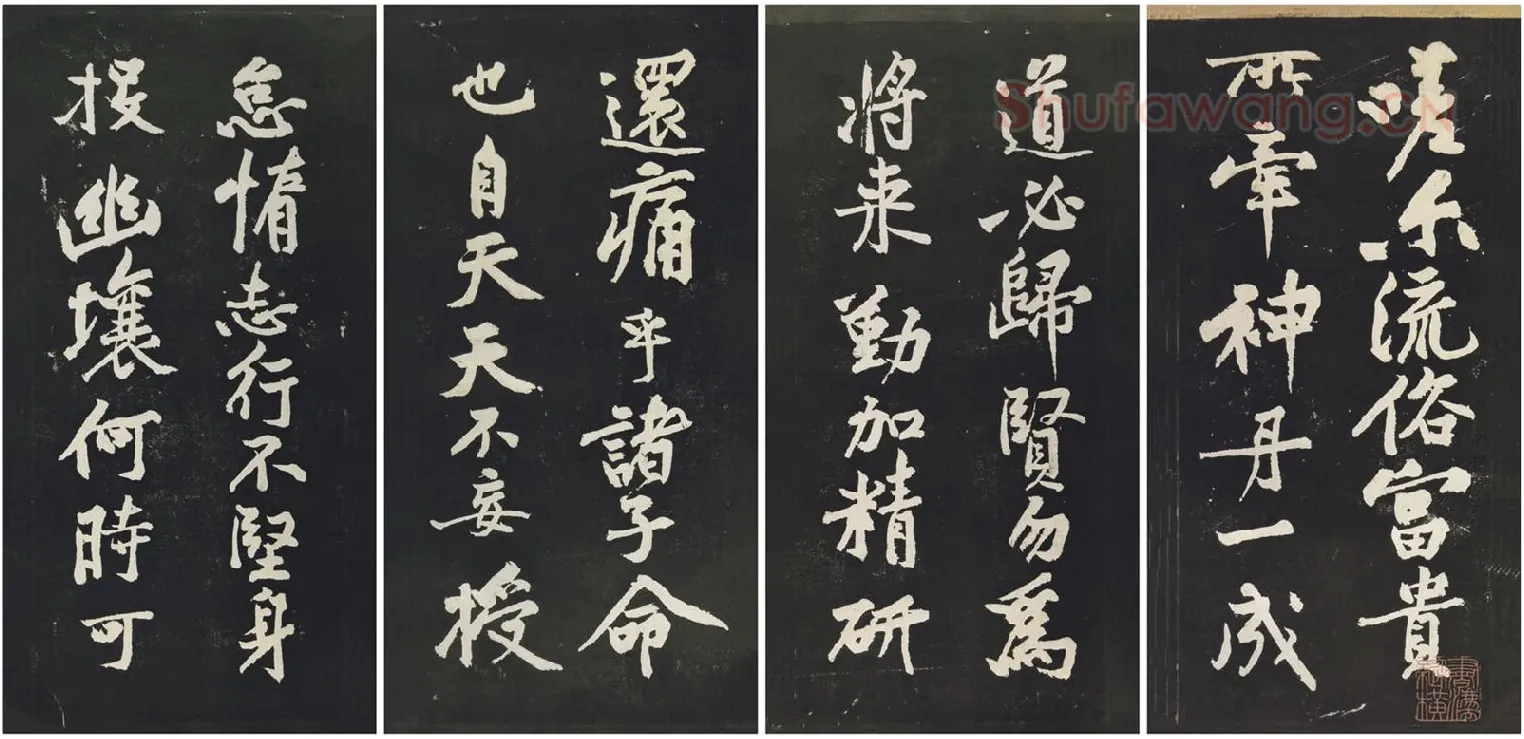 嗟尔流俗富貴
所牽神丹一成
道必歸賢勿為
將来勤加精研
還痛乎諸子命
也自天天不妄授
怠惰志行不堅身
投幽壤何時可
Shufawang.CN